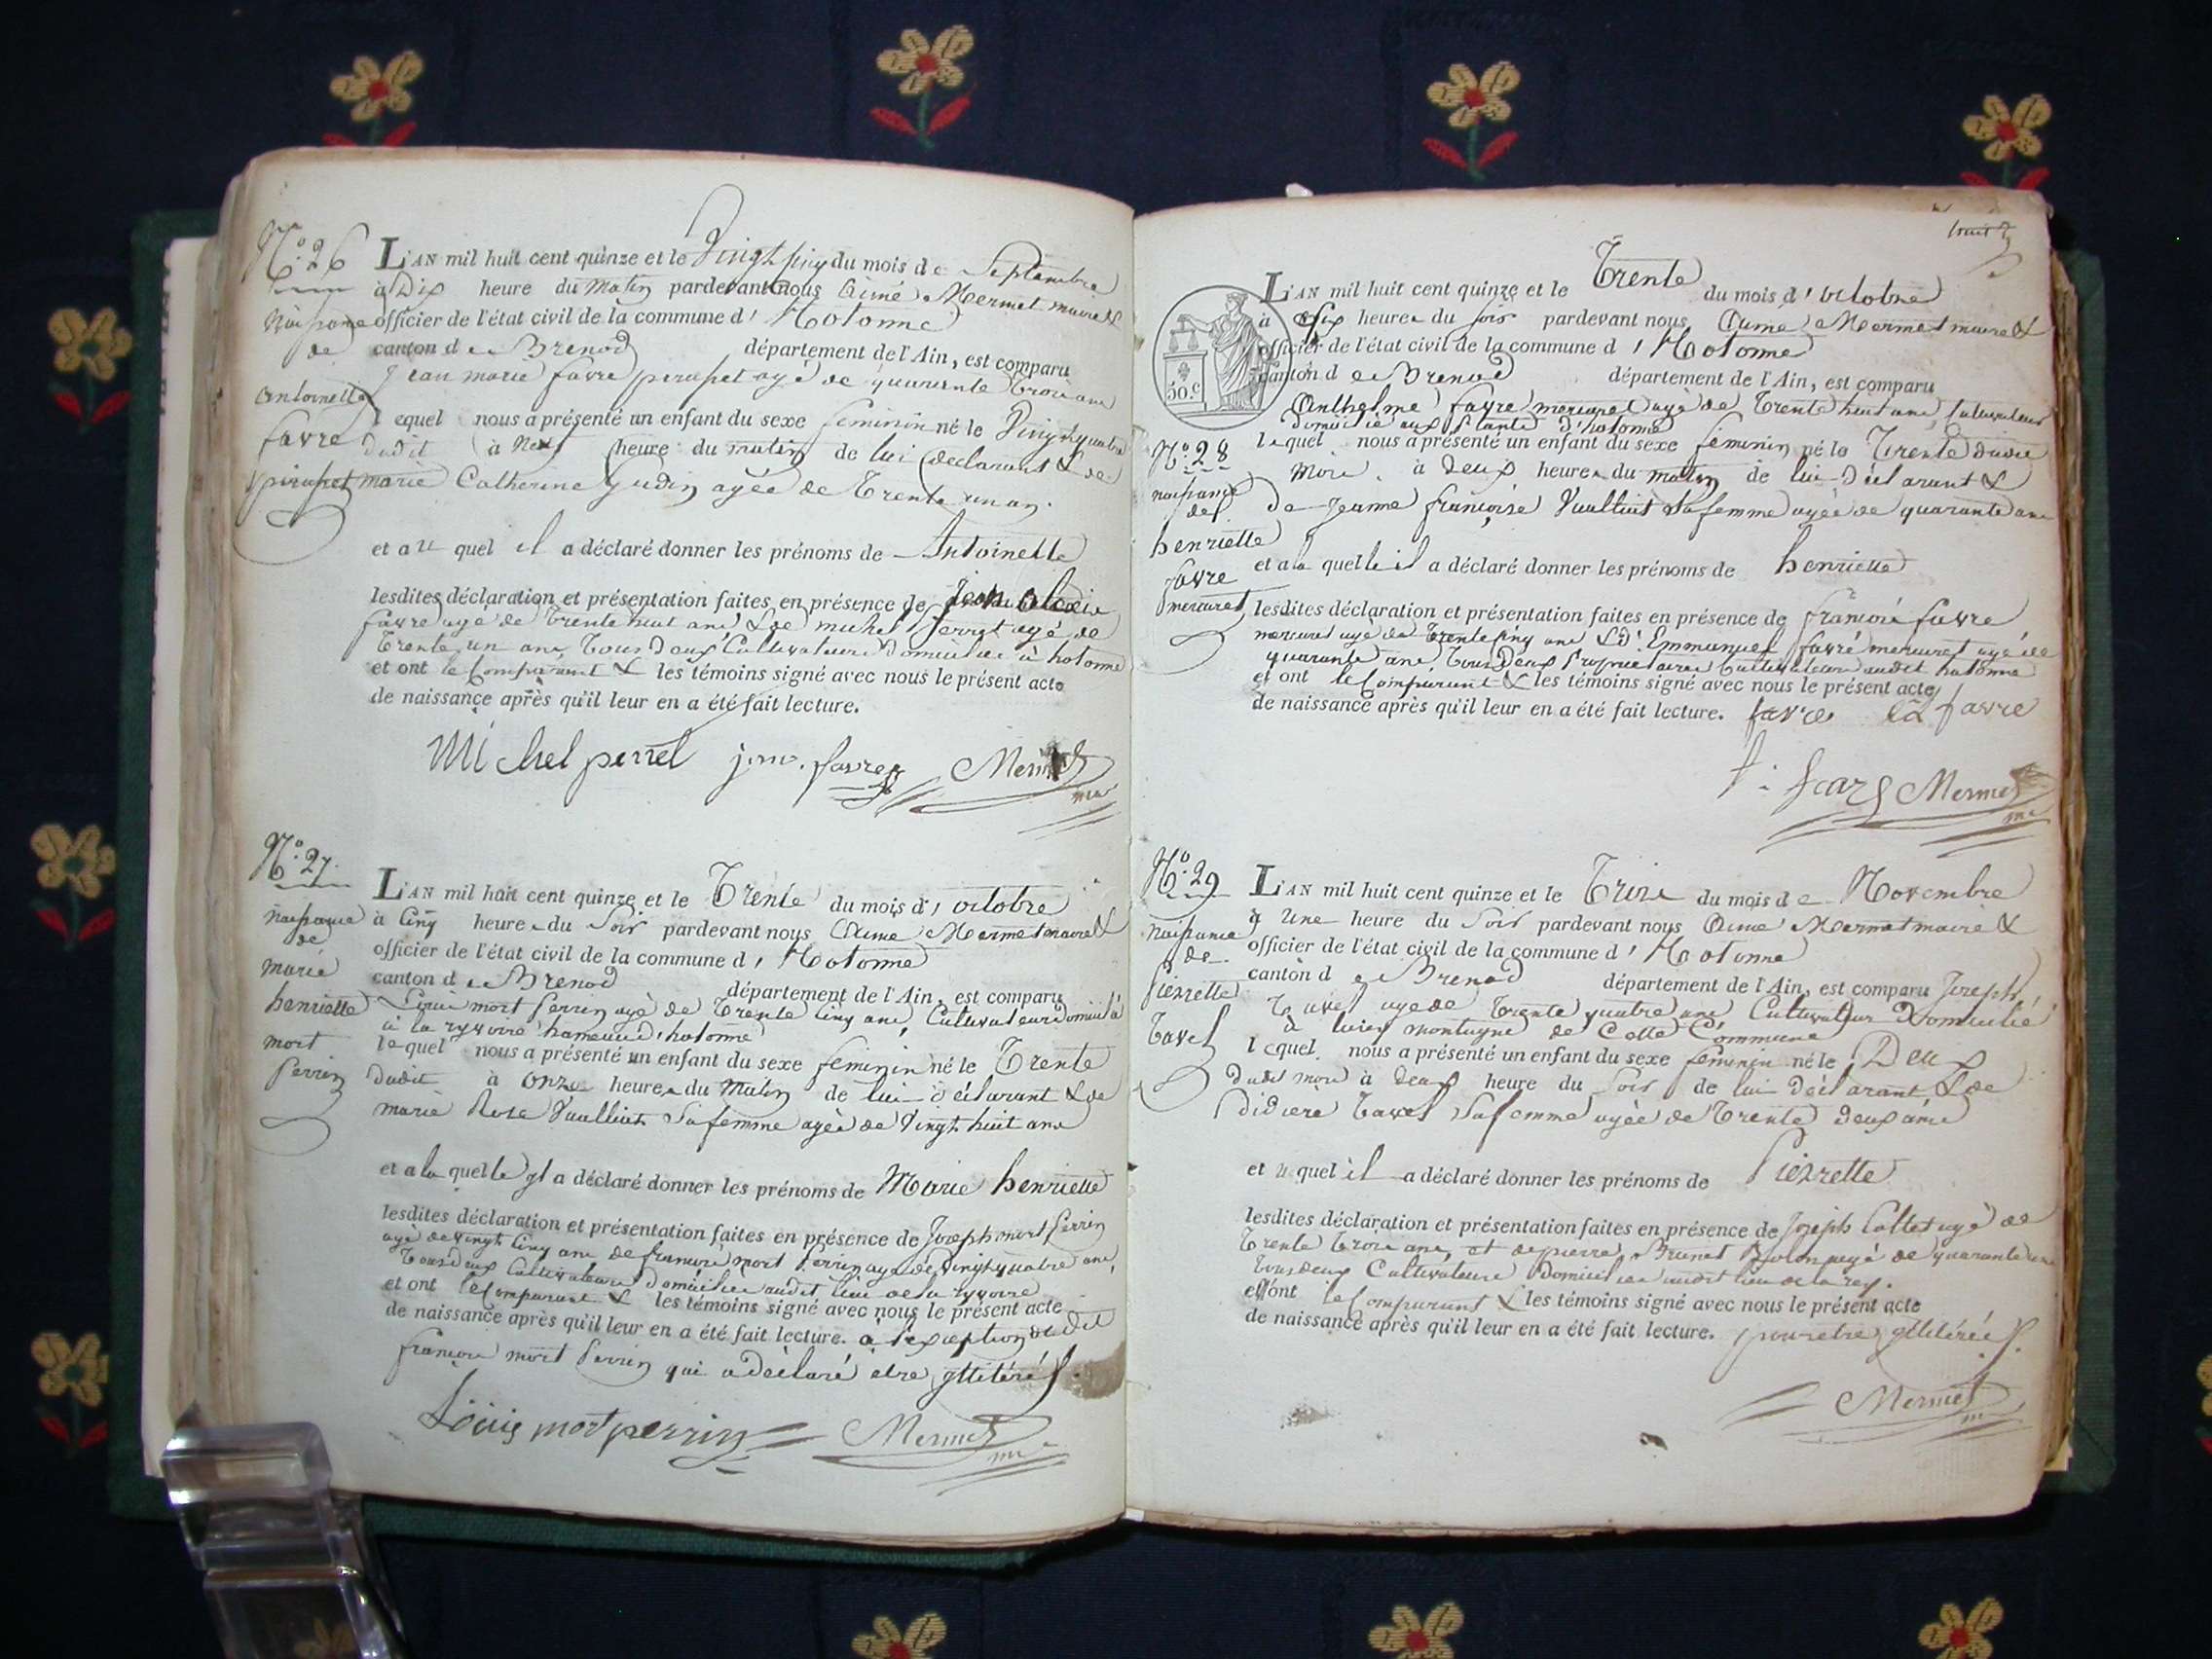 N.o 26
Naissance
de
antoinette
favre
L'AN mil huit cent quinze et le Vingt cinq du mois de Septembre
à Dix heure du Matin pardevant nous Aimé Mermet maire &
officier de l'état civil de la commune d' Hotonne
canton de Brenod département de l'Ain, est comparu
Jean marie favre age de quarante trois ans
lequel nous a présenté un enfant du sexe feminin né le Vingt quatre
dudit à Neuf heure du matin de lui declarant & de
marie Catherine Gudin agée de Trente un an.
et au quel il a déclaré donner les prénoms de Antoinette
lesdites déclaration et présentation faites en présence de Jean
favre agé de Trente huit ans & de michel perret agé de
Trente un ans Tous Deux Cultivateurs Domicilies à hotonne
et ont le Comparant & les témoins signé avec nous le présent acte
de naissance après qu'il leur en a été fait lecture.
Michel perret j.m. favre Mermet
N.o 27.
Naissance
de
marie
henriette
mort
Perrin
L'AN mil huit cent quinze et le Trente du mois d' octobre
à Cinq heure du Soir pardevant nous Aimé Mermet maire &
officier de l'état civil de la commune d' Hotonne
canton de Brenod département de l'Ain, est comparu
Louis mort Perrin agé de Trente Cinq ans, Cultivateur Domicilié
à la ryvoire hameau d'hotonne
lequel nous a présenté un enfant du sexe feminin né le Trente
dudit à onze heure du Matin de lui déclarant & de
marie Rose Vuilliet Sa femme agée de Vingt huit ans
et a la quelle il a déclaré donner les prénoms de Marie henriette
lesdites déclaration et présentation faites en présence de Joseph mort Perrin
agé de vingt Cinq ans de francois mort Perrin agé de Vingt quatre ans,
Tous deux Cultivateurs Domicilies audit lieu de la ryvoire
et ont le Comparant & les témoins signé avec nous le présent acte
de naissance après qu'il leur en a été fait lecture. à l'exception dudit
francois mort Perrin qui a déclaré etre illitéré
Louis mort perrin Mermet
L'AN mil huit cent quinze et le Trente du mois d' octobre
à Six heure du Soir pardevant nous Aimé Mermet maire &
officier de l'état civil de la commune d' Hotonne
canton de Brenod département de l'Ain, est comparu
Anthelme favre mercuret agé de Trente huit ans, Cultivateur
Domicilié aux plants d'hotonne
50.c
N.o 28
naissance
de
henriette
favre
mercuret
lequel nous a présenté un enfant du sexe feminin né le Trente dudit
Mois à Deux heure du matin de lui Déclarant &
de Jeanne françoise Vuilliet Sa femme agée de quarante ans
et a la quelle il a déclaré donner les prénoms de henriette
lesdites déclaration et présentation faites en présence de francois favre
mercuret agé de Trente Cinq ans & d'Emmanuel favre mercuret agé de
quarante ans, Tous Deux Proprietaires Cultivateurs audit hotonne
et ont le Comparant & les témoins signé avec nous le présent acte
de naissance après qu'il leur en a été fait lecture. favre favre
Mermet
N.o 29
Naissance
de
Pierrette
Tavel
L'AN mil huit cent quinze et le Treize du mois de Novembre
à Une heure du Soir pardevant nous Aimé Mermet maire &
officier de l'état civil de la commune d' Hotonne
canton de Brenod département de l'Ain, est comparu Joseph
Tavel age de Trente quatre ans Cultivateur Domicilié
montagne de Cette Commune
lequel nous a présenté un enfant du sexe feminin né le Deux
dudit mois à Deux heure du Soir de lui Déclarant & de
Didiere Tavel Sa femme agée de Trente Deux ans
et au quel il a déclaré donner les prénoms de Pierrette
lesdites déclaration et présentation faites en présence de Joseph Collet agé de
Trente Trois ans, et de pierre Brunet agé de quarante un
Tous deux Cultivateurs Domicilies audit lieu
et ont le Comparant & les témoins signé avec nous le présent acte
de naissance après qu'il leur en a été fait lecture. pour etre illitérés
Mermet